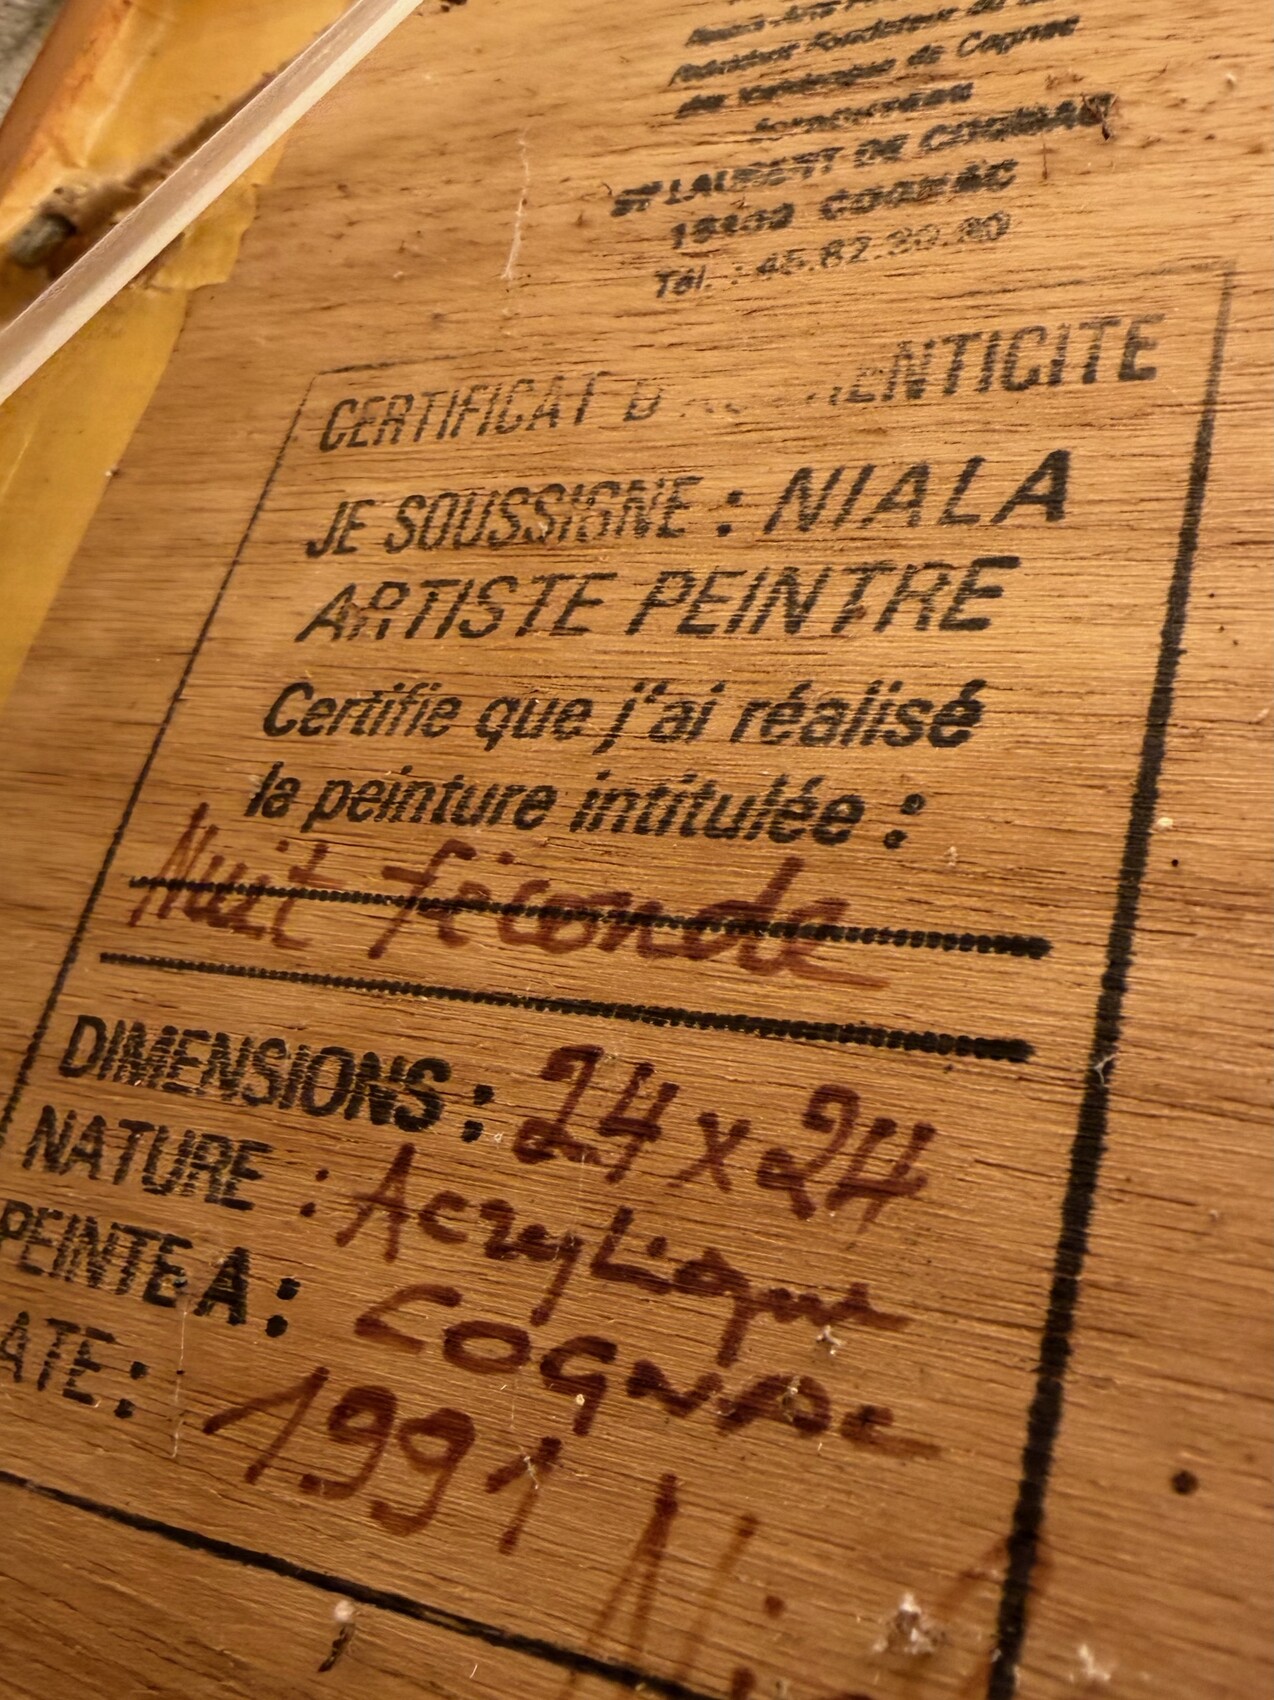 de Cognac
ST LAURENT DE COGNAC
COGNAC
Tél. : 45.82.
CERTIFICAT D'AUTHENTICITE
JE SOUSSIGNE : NIALA
ARTISTE PEINTRE
Certifie que j'ai réalisé
la peinture intitulée :
Nuit féconde
DIMENSIONS : 24 x 24
NATURE : Acrylique
PEINTE A : COGNAC
ATE : 1991